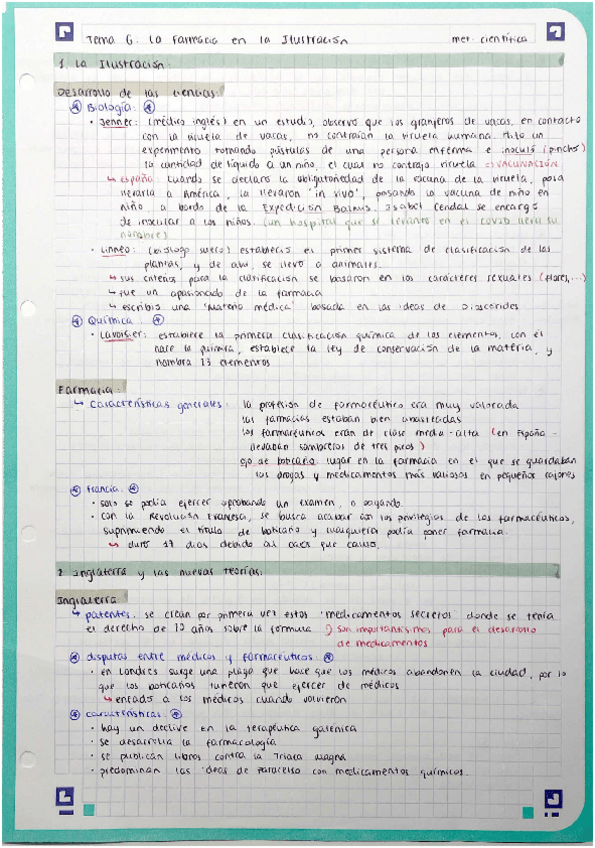 Tema 6. La Farmacia en la Ilustración met. científica
1. La Ilustración:
Desarrollo de las ciencias:
Biología:
· Jenner: (médico inglés) en un estudio, observó que los granjeros de vacas, en contacto
con la viruela de vacas, no contraían la viruela humana. Hizo un
experimento tomando pústulas de una persona enferma e inoculó (pinchó)
la cantidad de líquido a un niño, el cual no contrajo viruela => VACUNACIÓN
↳ España: cuando se declaró la obligatoriedad de la vacuna de la viruela, para
llevarla a América, la llevaron "in vivo", pasando la vacuna de niño en
niño a bordo de la Expedición Balmis. Isabel Cendal se encargó
de inocular a los niños. (un hospital que se levantó en el covid lleva su
nombre)
· Linneo: (biólogo sueco) estableció el primer sistema de clasificación de las
plantas, y de ahí, se llevó a animales.
↳ sus criterios para la clasificación se basaron en los caracteres sexuales (flores,...)
↳ fue un apasionado de la farmacia
↳ escribió una "materia médica" basada en las ideas de Dioscórides
Química:
· Lavoisier: establece la primera clasificación química de los elementos, con él
nace la química, establece la ley de conservación de la materia, y
nombra 13 elementos
Farmacia:
↳ Características generales: la profesión de farmacéutico era muy valorada
las farmacias estaban bien abastecidas
los farmacéuticos eran de clase media-alta (en España
llevaban sombreros de tres picos)
ojo de boticario: lugar en la farmacia en el que se guardaban
las drogas y medicamentos más valiosos en pequeños cajones
Francia:
· solo se podía ejercer aprobando un examen, o pagando.
· con la Revolución Francesa, se busca acabar con los privilegios de los farmacéuticos,
suprimiendo el título de boticario y cualquiera podía poner farmacia.
↳ duró 17 días debido al caos que causó.
2. Inglaterra y las nuevas teorías:
Inglaterra
↳ patentes: se crean por primera vez estos "medicamentos secretos" donde se tenía
el derecho de años sobre la fórmula son importantísimos para el desarrollo
de medicamentos
disputas entre médicos y farmacéuticos:
· en Londres surge una plaga que hace que los médicos abandonen la ciudad, por lo
que los boticarios tuvieron que ejercer de médicos
↳ enfado a los médicos cuando volvieron
características:
· hay un declive en la terapéutica galénica
· se desarrolla la farmacología
· se publican libros contra la Triaca Magna
· predominan las ideas de Paracelso con medicamentos químicos.